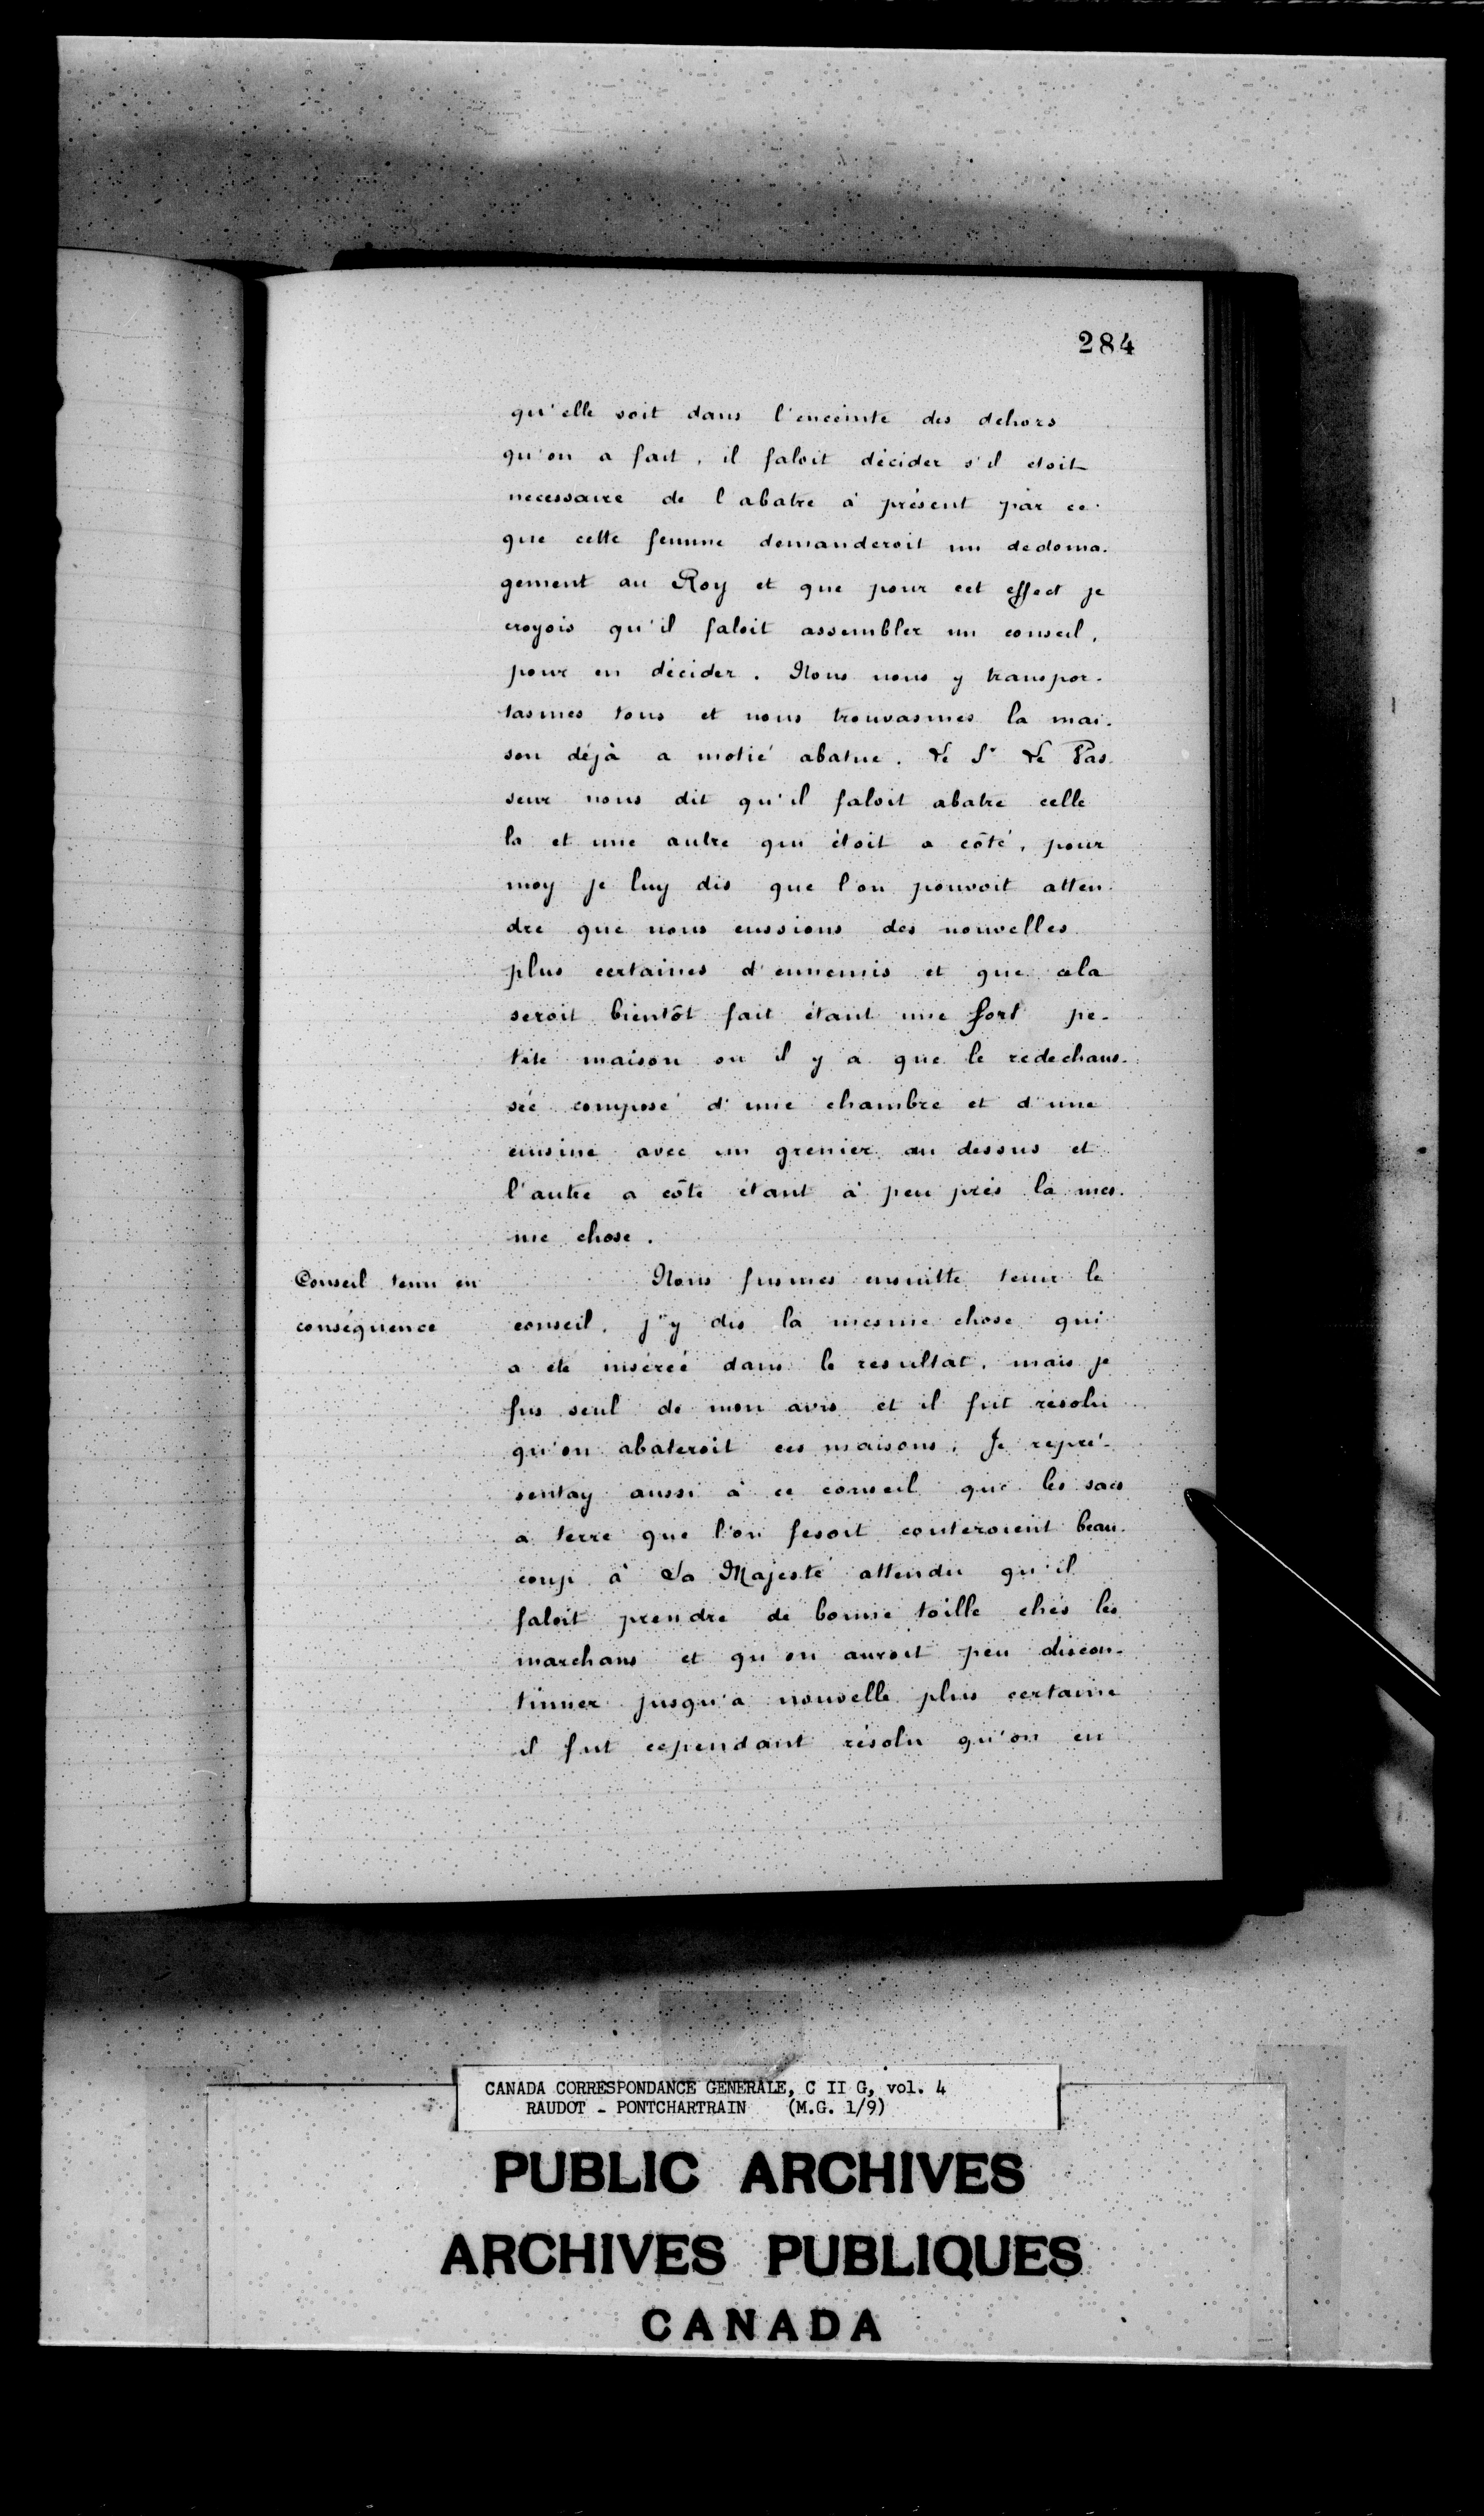 284
qu'elle soit dans l'enceinte des dehors
qu'on a fait, il faloit décider s'il etoit
necessaire de l'abatre à présent par ce
que cette femme demanderoit un dedoma-
gement au Roy et que pour cet effect je
croyois qu'il faloit assembler un conseil,
pour en décider. Nous nous y transpor-
tasmes tous et nous trouvasmes la mai-
son déjà a motié abatue. Le Sr Le Vas
seur nous dit qu'il faloit abatre celle
la et une autre qui étoit a côté, pour
moy je luy dis que l'on pouvoit atten-
dre que nous eussions des nouvelles
plus certaines d'ennemis et que cela
seroit bientôt fait étant une fort pe-
tite maison ou il y a que le redechaus-
sée composé d'une chambre et d'une
cuisine avec un grenier au dessus et
l'autre a côte étant à peu près la mes-
me chose.
Conseil tenu en
conséquence
Nous fusmes ensuitte tenir le
conseil, j'y dis la mesme chose qui
a été inserée dans le resultat, mais je
fus seul de mon avis et il fut résolu
qu'on abateroit ces maisons. Je repré-
sentay aussi à ce conseil que les sacs
a terre que l'on fesoit couteroient beau-
coup à Sa Majesté attendu qu'il
faloit prendre de bonne toille chés les
marchans et qu'on auroit peu discon-
tinuer jusqu'a nouvelle plus certaine
il fut cependant résolu qu'on en
CANADA CORRESPONDANCE GENERALE, C II G, vol. 4
RAUDOT - PONTCHARTRAIN (M.G. 1/9)
PUBLIC ARCHIVES
ARCHIVES PUBLIQUES
CANADA